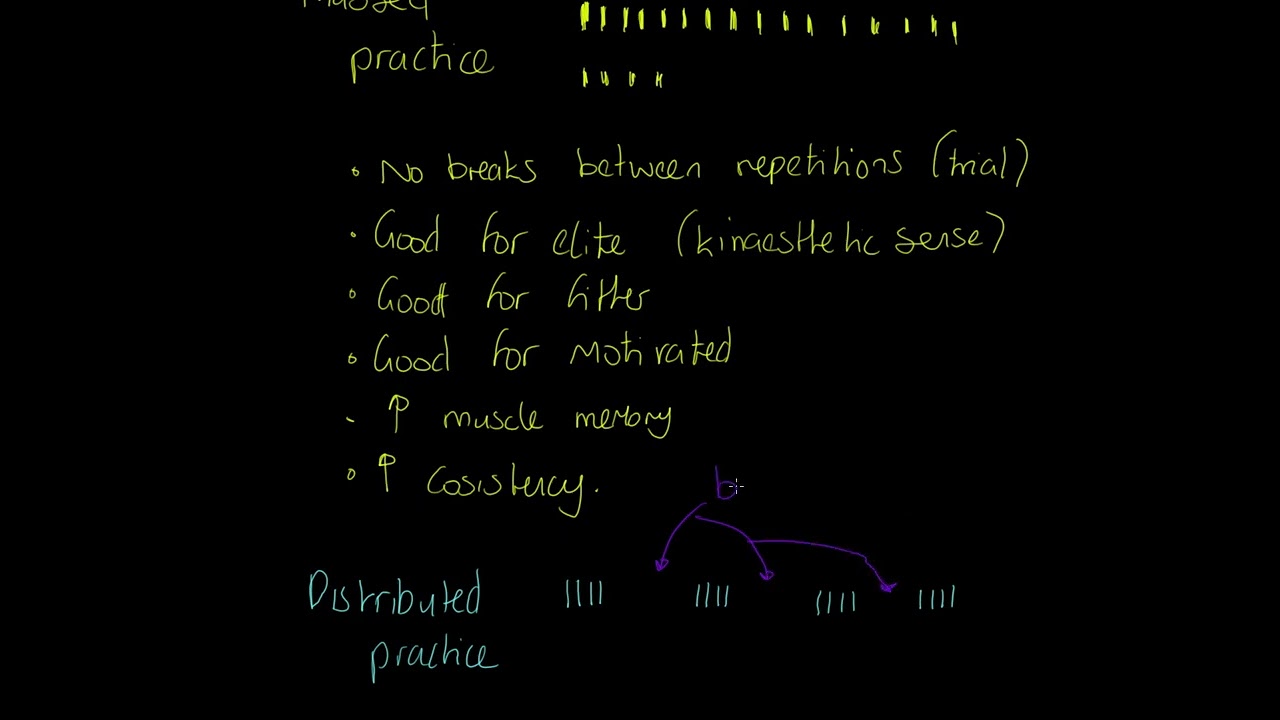 Massed
practice
• No breaks between repetitions (trial)
• Good for elite (kinaesthetic sense)
• Good for fitter
• Good for motivated
- ↑ muscle memory
• ↑ cosistency.
b
Distributed
practice